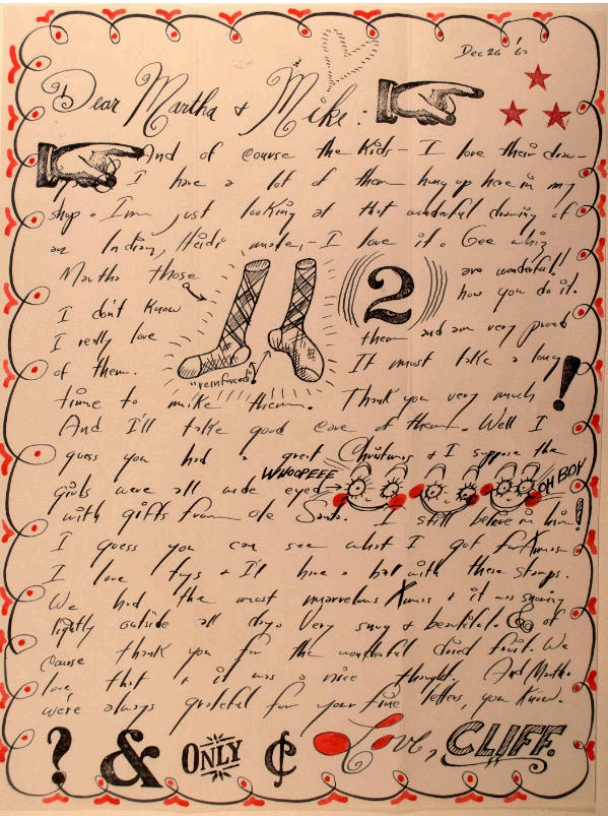 Dec 26 '62
Dear Martha & Mike:
And of course the kids— I love their draw-
I have a lot of them hung up here in my
shop. I'm just looking at that wonderful drawing of
an Indian, Heidi made,— I love it. Gee whiz
Martha those 2 are wonderful!
I don't know how you do it.
I really love them and am very proud
of them. "reinforced" It must take a long
time to make them. Thank you very much!
And I'll take good care of them. Well I
guess you had a great Christmas & I suppose the
WHOOPEEE
OH BOY
girls were all wide eyed
with gifts from ole Santa. I still believe in him!
I guess you can see what I got for Xmas
I love toys & I'll have a ball with these stamps.
We had the most marvelous Xmas & it was snowing
lightly outside all day. Very snug & beautiful. of
course thank you for the wonderful dried fruit. We
love that & it was a nice thought. And Martha
we're always grateful for your fine letters, you know.
? & ONLY ¢ Love, CLIFF.